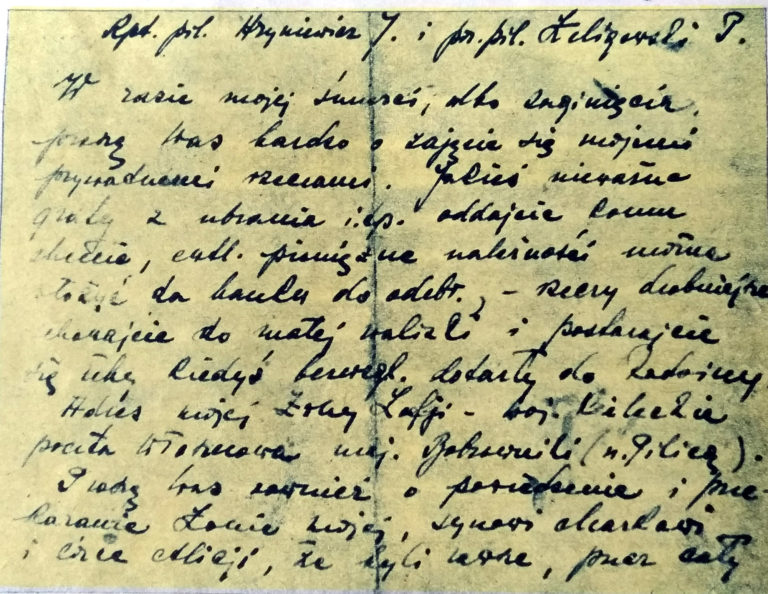 Kpt. pil. Hryniewicz J. i por. pil. Żelizowski P.
W razie mojej śmierci, albo zaginięcia,
proszę Was bardzo o zajęcie się mojemi
prywatnemi rzeczami. Jakieś nieważne
graty z ubrania i.t.p. oddajcie komu
chcecie, ewtl. pieniężne należności można
złożyć do banku do odebr., – rzeczy drobniejsze
schowajcie do małej walizki i postarajcie
się żeby kiedyś bezwzgl. dotarły do rodziny
Adres mojej żony Zofji – woj. Kieleckie
poczta Włoszczowa maj. Bobrowniki (n. Pilicą).
Proszę Was również o powiedzenie i prze-
kazanie żonie mojej, synowi
i córce Alicji, że byli zawsze, przez cały